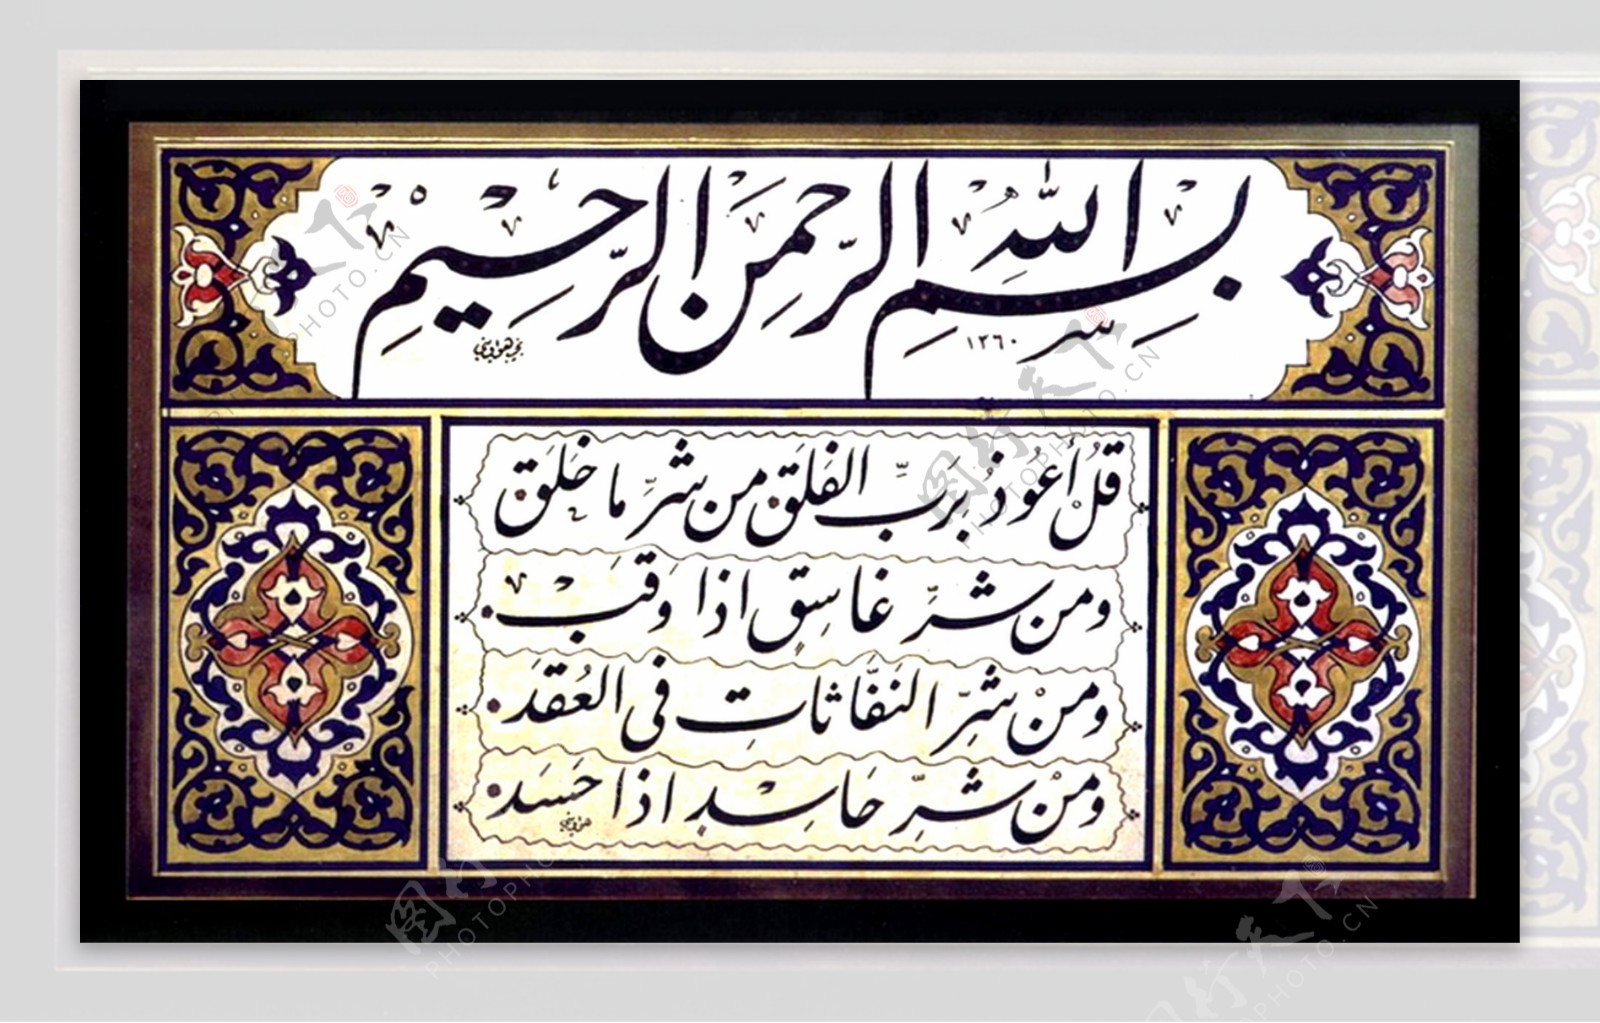 بسم الله الرحمن الرحيم
١٣٦٠
قل أعوذ برب الفلق من شر ما خلق
ومن شر غاسق اذا وقب
ومن شر النفاثات في العقد
ومن شر حاسد اذا حسد
图行天下
PHOTOPHOTO.CN